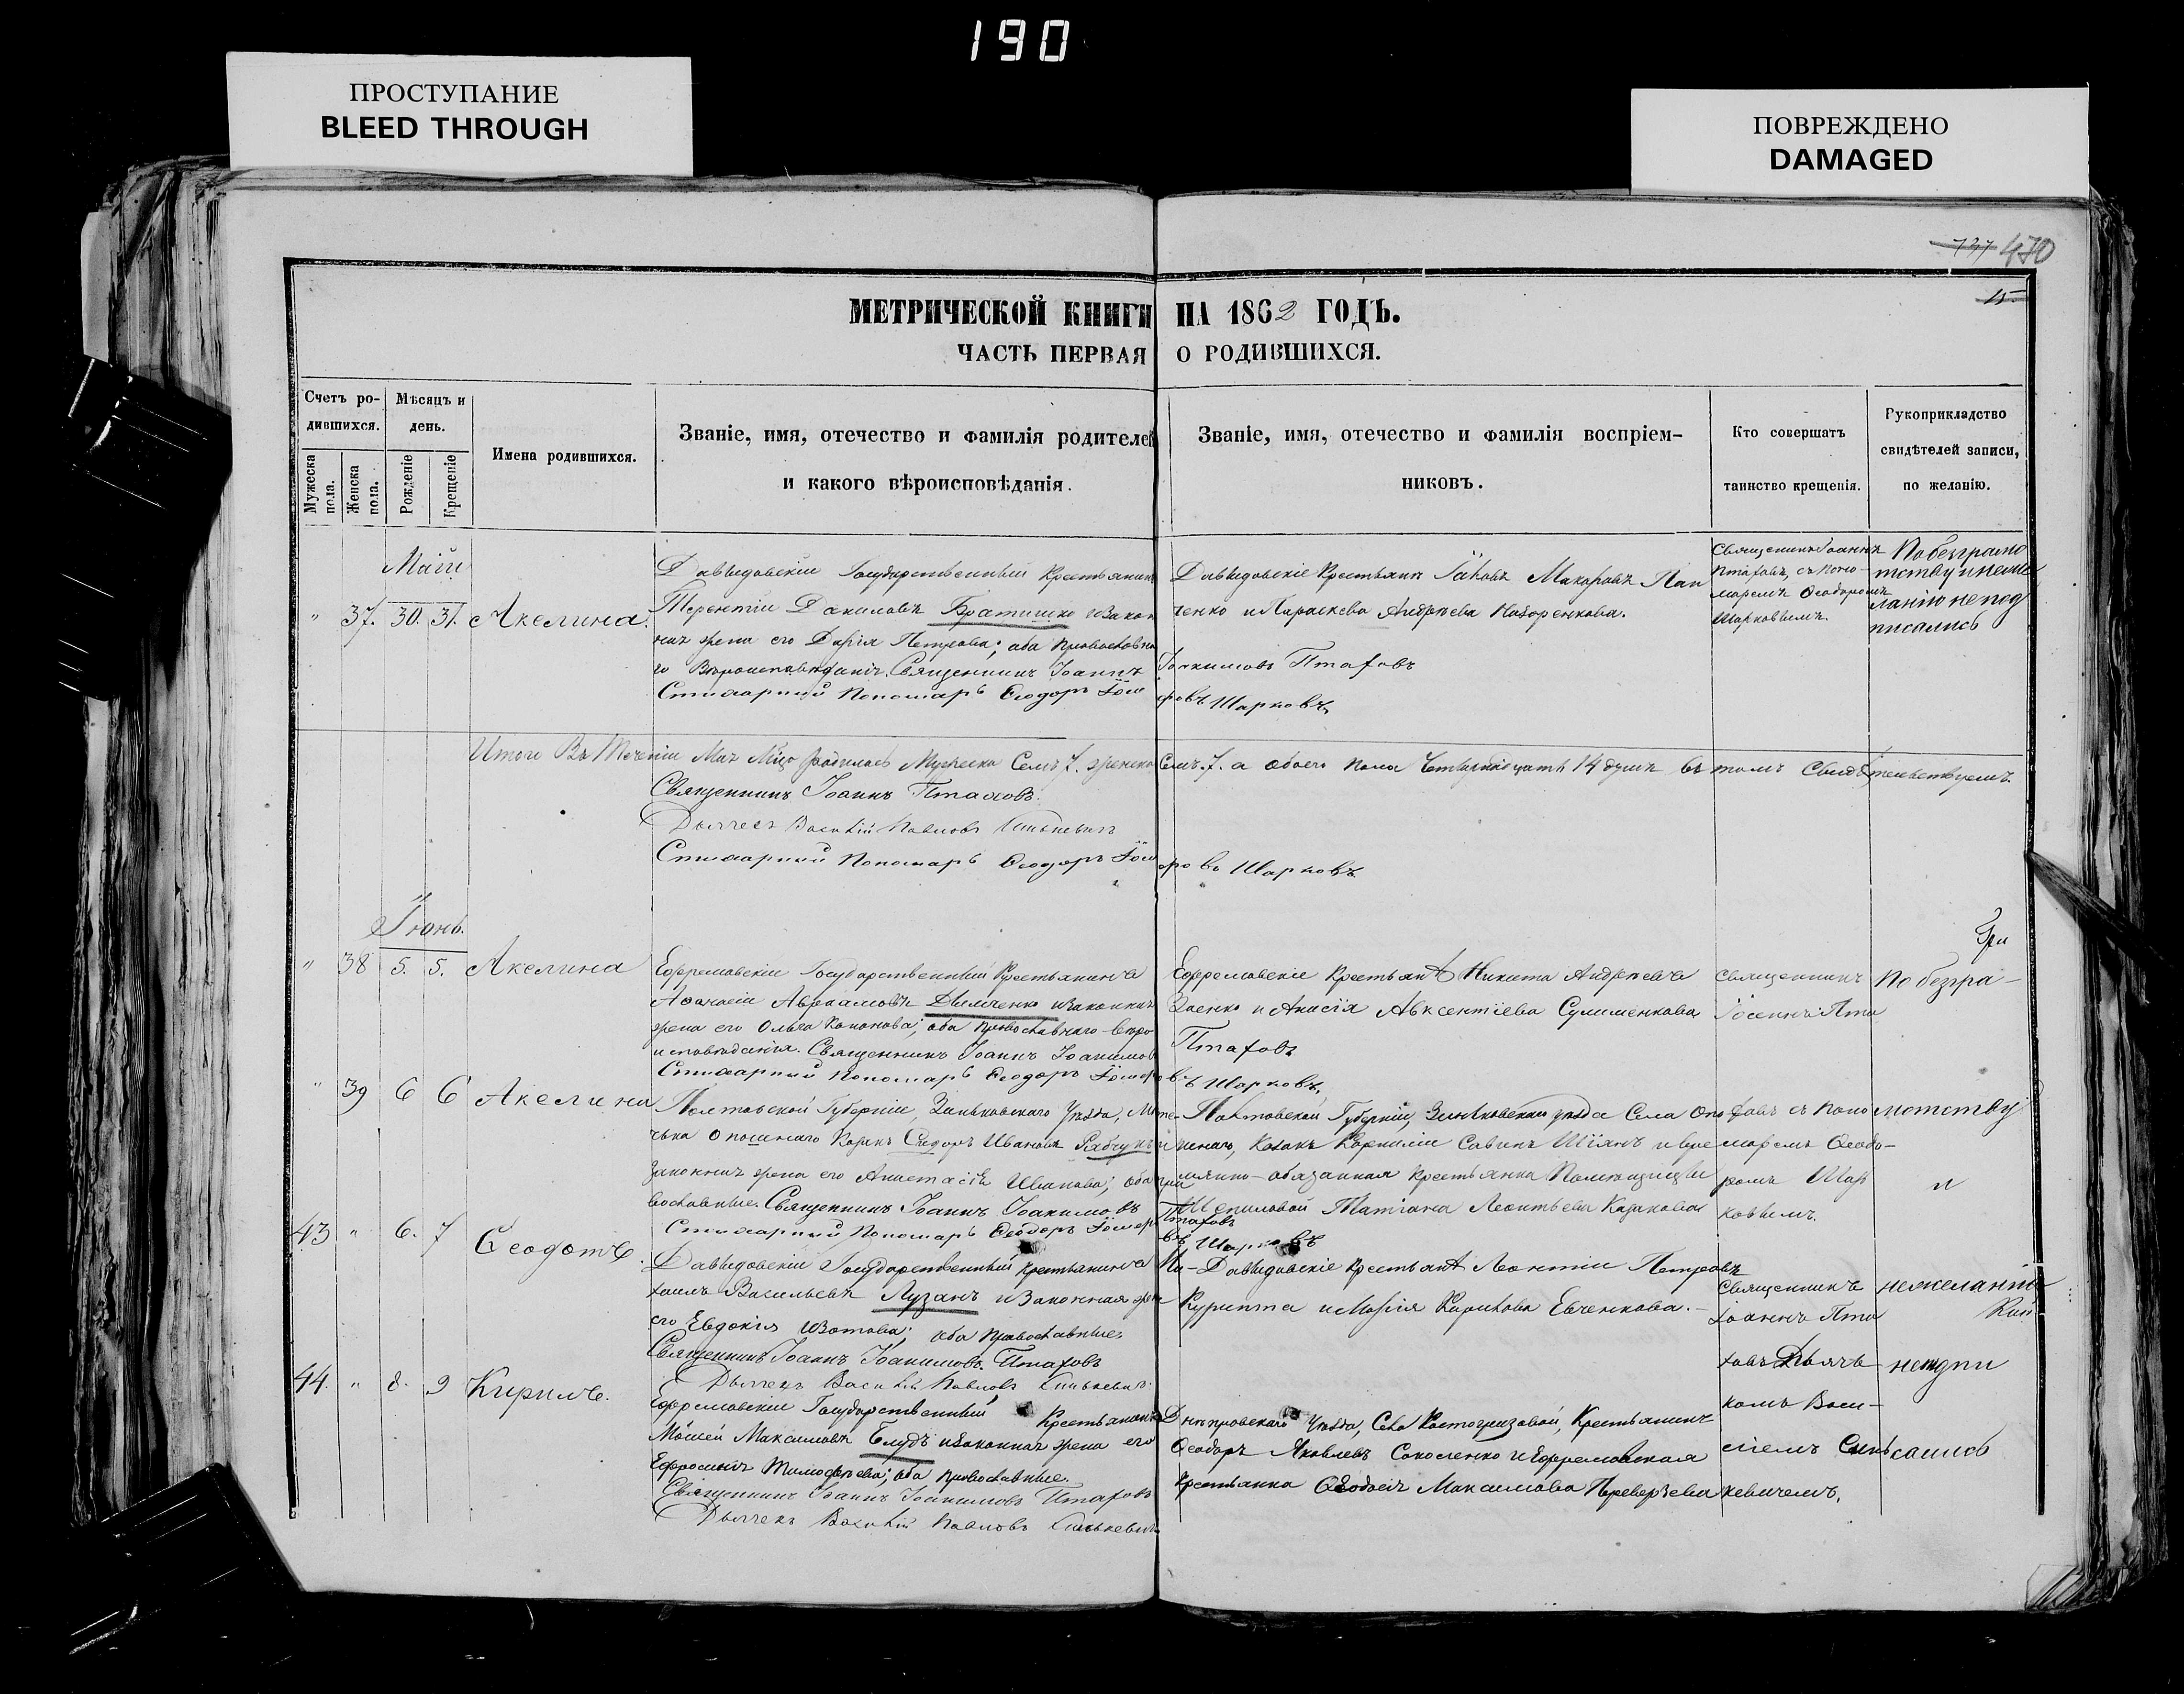 190
ПРОСТУПАНИЕ
BLEED THROUGH
ПОВРЕЖДЕНО
DAMAGED
737 470
15
МЕТРИЧЕСКОЙ КНИГИ НА 1862 ГОДЪ.
ЧАСТЬ ПЕРВАЯ О РОДИВШИХСЯ.
Счетъ ро-
дившихся.
Мужеска пола.
Женска пола.
Мѣсяцъ и
день.
Рожденіе
Крещеніе
Имена родившихся.
Званіе, имя, отечество и фамилія родителей
и какого вѣроисповѣданія.
Званіе, имя, отечество и фамилія воспріем-
никовъ.
Кто совершатъ
таинство крещенія.
Рукоприкладство
свидѣтелей записи,
по желанію.
Маія
" 37. 30. 31. Акелина.
Давыдовскій Государственный Крестьянинъ
Терентій Даниловъ Братишко и закон
ная жена его Дарія Петрова; оба Православна
го Вѣроисповѣданія. Священникъ Іоаннъ Іоакимовъ Птаховъ
Стихарный Пономарь Ѳеодоръ Шарковъ
Давыдовскіе Крестьянинъ Іаковъ Макаровъ Пан
ченко и Параскева Андрѣева Назоренкова.
Священникъ Іоаннъ
Птаховъ, съ поно-
маремъ Ѳеодоромъ
Шарковымъ.
По безграмо
тству и неже
ланію не под
писались
Итого Въ Теченіи Маія Мѣсяца родилось Мужеска Семь 7. женска Семь 7. а обоего пола Четырнадцать 14 душъ въ томъ Свидѣтельствуемъ.
Священникъ Іоаннъ Птаховъ.
Дьячекъ Василій Павловъ Синькевичъ
Стихарный Пономарь Ѳеодоръ Шарковъ
Іюнь.
" 38 5. 5. Акелина
Ефремовскій Государственный Крестьянинъ
Аѳанасій Авраамовъ Дымченко и законная
жена его Ольга Кононова; оба Православнаго вѣро
исповѣданія. Священникъ Іоаннъ Іоакимовъ Птаховъ
Стихарный Пономарь Ѳеодоръ Шарковъ.
Ефремовскіе Крестьян. Никита Андрѣевъ
Заенко и Анисія Авксентіева Сулименкова
Священникъ
Іоаннъ Пта
По безгра-
" 39 6 6 Акелина
Полтавской Губерніи, Зиньковскаго Уѣзда, Мѣсте-
чка Опошнаго Козакъ Сидоръ Ивановъ Рябчукъ и
законная жена его Анастасія Иванова; оба пра
вославные. Священникъ Іоаннъ Іоакимовъ Птаховъ
Стихарный Пономарь Ѳеодоръ Шарковъ
Полтавской Губерніи, Зиньковскаго уѣзда Села Опо
шнаго, Козакъ Корнилій Савинъ Шіянъ и вре
мянно-обязанная Крестьянка Помѣщицы
Шепиловой Татіана Леонтьева Казакова
ховъ съ поно
маремъ Ѳеодо-
ромъ Шар
ковымъ.
мотству
и
43 " 6. 7 Ѳеодотъ.
Давыдовскій Государственный Крестьянинъ Ми-
хаилъ Васильевъ Лузанъ и Законная жена
его Евдокія Изотова; оба Православные
Священникъ Іоаннъ Іоакимовъ Птаховъ
Дьячекъ Василій Павловъ Синькевичъ.
Давыдовскіе Крестьян. Леонтій Петровъ
Курипта и Марія Карпова Евченкова.-
Священникъ
Іоаннъ Пта
ховъ съ Дьяч
нежеланію
44. " 8. 9 Кирилъ.
Ефремовскій Государственный Крестьянинъ
Мойсей Максимовъ Блудъ и законная жена его
Ефросинія Тимофѣева; оба Православные.
Священникъ Іоаннъ Іоакимовъ Птаховъ
Дьячекъ Василій Павловъ Синькевичъ
Днѣпровскаго Уѣзда, Села Костогризовой, Крестьянинъ
Ѳеодоръ Яковлевъ Соколенко и Ефремовская
Крестьянка Ѳеодосія Максимова Переверзева
комъ Васи-
ліемъ Синь
кевичемъ.
неподпи
сались